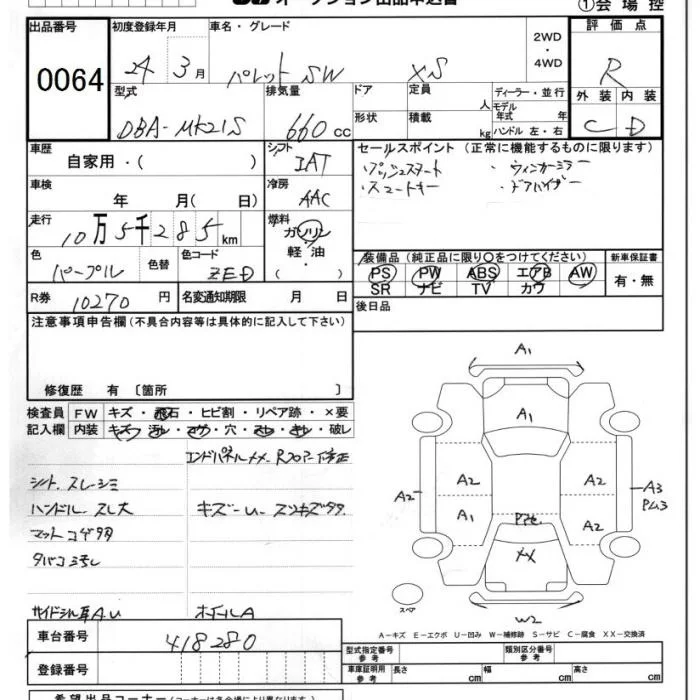 オークション出品申込書
①会場控
出品番号 初度登録年月 車名・グレード 2WD・4WD 評価点
0064 24 3月 パレットSW XS R
型式 排気量 ドア 定員 人 ディーラー・並行 外装 内装
DBA-MK21S 660cc 形状 積載 kg モデル年式 年 ハンドル 左・右 C D
車歴 自家用・( ) シフト IAT セールスポイント (正常に機能するものに限ります)
・プッシュスタート ・ウィンカーミラー
・スマートキー ・ドアバイザー
車検 年 月( 日) 冷房 AAC
走行 10万5千285km 燃料 ガソリン・軽・油・( )
色 パープル 色替 色コード ZED
装備品 (純正品に限り○をつけてください) 新車保証書
PS PW ABS エアB AW 有・無
SR ナビ TV カワ
R券 10270円 名変通知期限 月 日 後日品
注意事項申告欄(不具合内容等は具体的に記入して下さい)
修復歴 有 〔箇所 〕
検査員 FW キズ・飛石・ヒビ割・リペア跡・×要
記入欄 内装 キズ・汚れ・コゲ・穴・スレ・キレ・破レ
エンドパネルメメ-Rフロアー下修正
シート.スレ-シミ
ハンドル.スレ大 キズ-U-スリキズ多々
マットコゲ多々
タバコ汚れ
サイドシル耳A.U ホイールA
A1
A1
A2 A2 A2 A3
A1 A2 PムЗ
XX
スペア
W2
A-キズ E-エクボ U-凹み W-補修跡 S-サビ C-腐食 XX-交換済
車台番号 418280
登録番号
型式指定番号 参考 類別区分番号 参考
車庫証明用 参考 長さ cm 幅 cm 高さ cm
希望出品コーナー